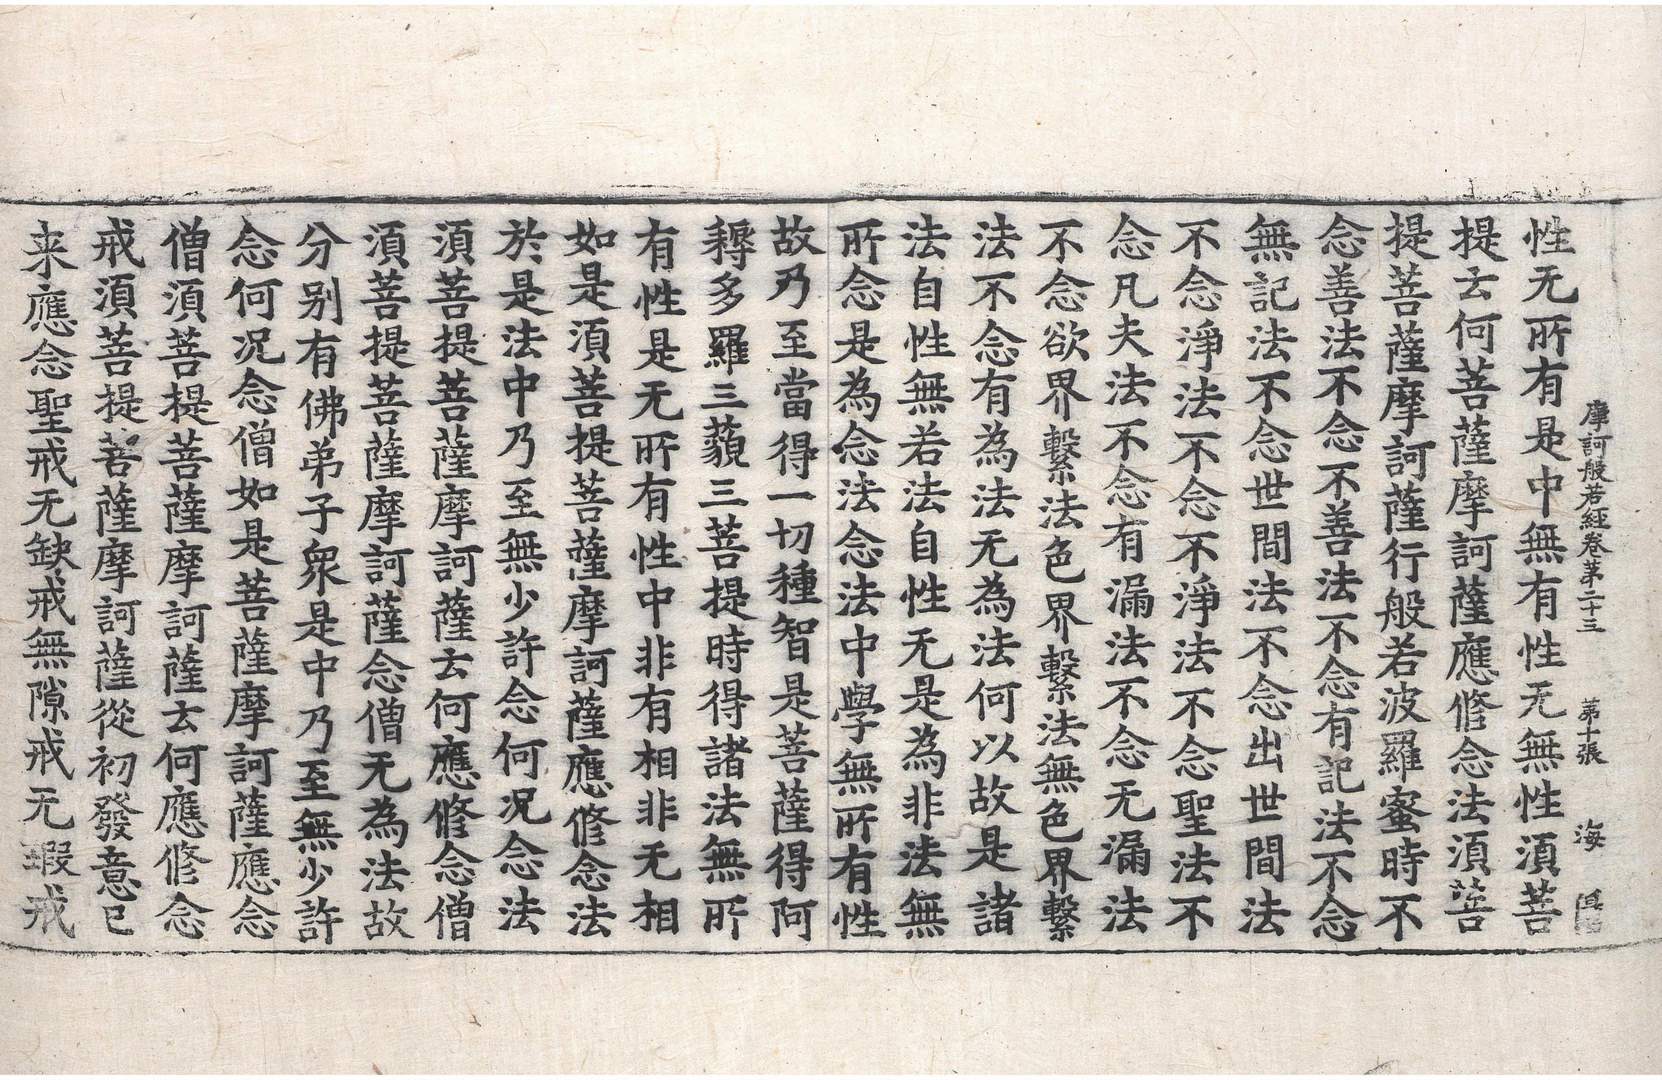 摩訶般若經卷第二十三　第十張　海
性无所有是中無有性无無性須菩
提云何菩薩摩訶薩應修念法須菩
提菩薩摩訶薩行般若波羅蜜時不
念善法不念不善法不念有記法不念
無記法不念世間法不念出世間法
不念淨法不念不淨法不念聖法不
念凡夫法不念有漏法不念无漏法
不念欲界繫法色界繫法無色界繫
法不念有為法无為法何以故是諸
法自性無若法自性无是為非法無
所念是為念法念法中學無所有性
故乃至當得一切種智是菩薩得阿
耨多羅三藐三菩提時得諸法無所
有性是无所有性中非有相非无相
如是須菩提菩薩摩訶薩應修念法
於是法中乃至無少許念何况念法
須菩提菩薩摩訶薩云何應修念僧
須菩提菩薩摩訶薩念僧无為法故
分别有佛弟子衆是中乃至無少許
念何况念僧如是菩薩摩訶薩應念
僧須菩提菩薩摩訶薩云何應修念
戒須菩提菩薩摩訶薩從初發意已
来應念聖戒无缺戒無隙戒无瑕戒